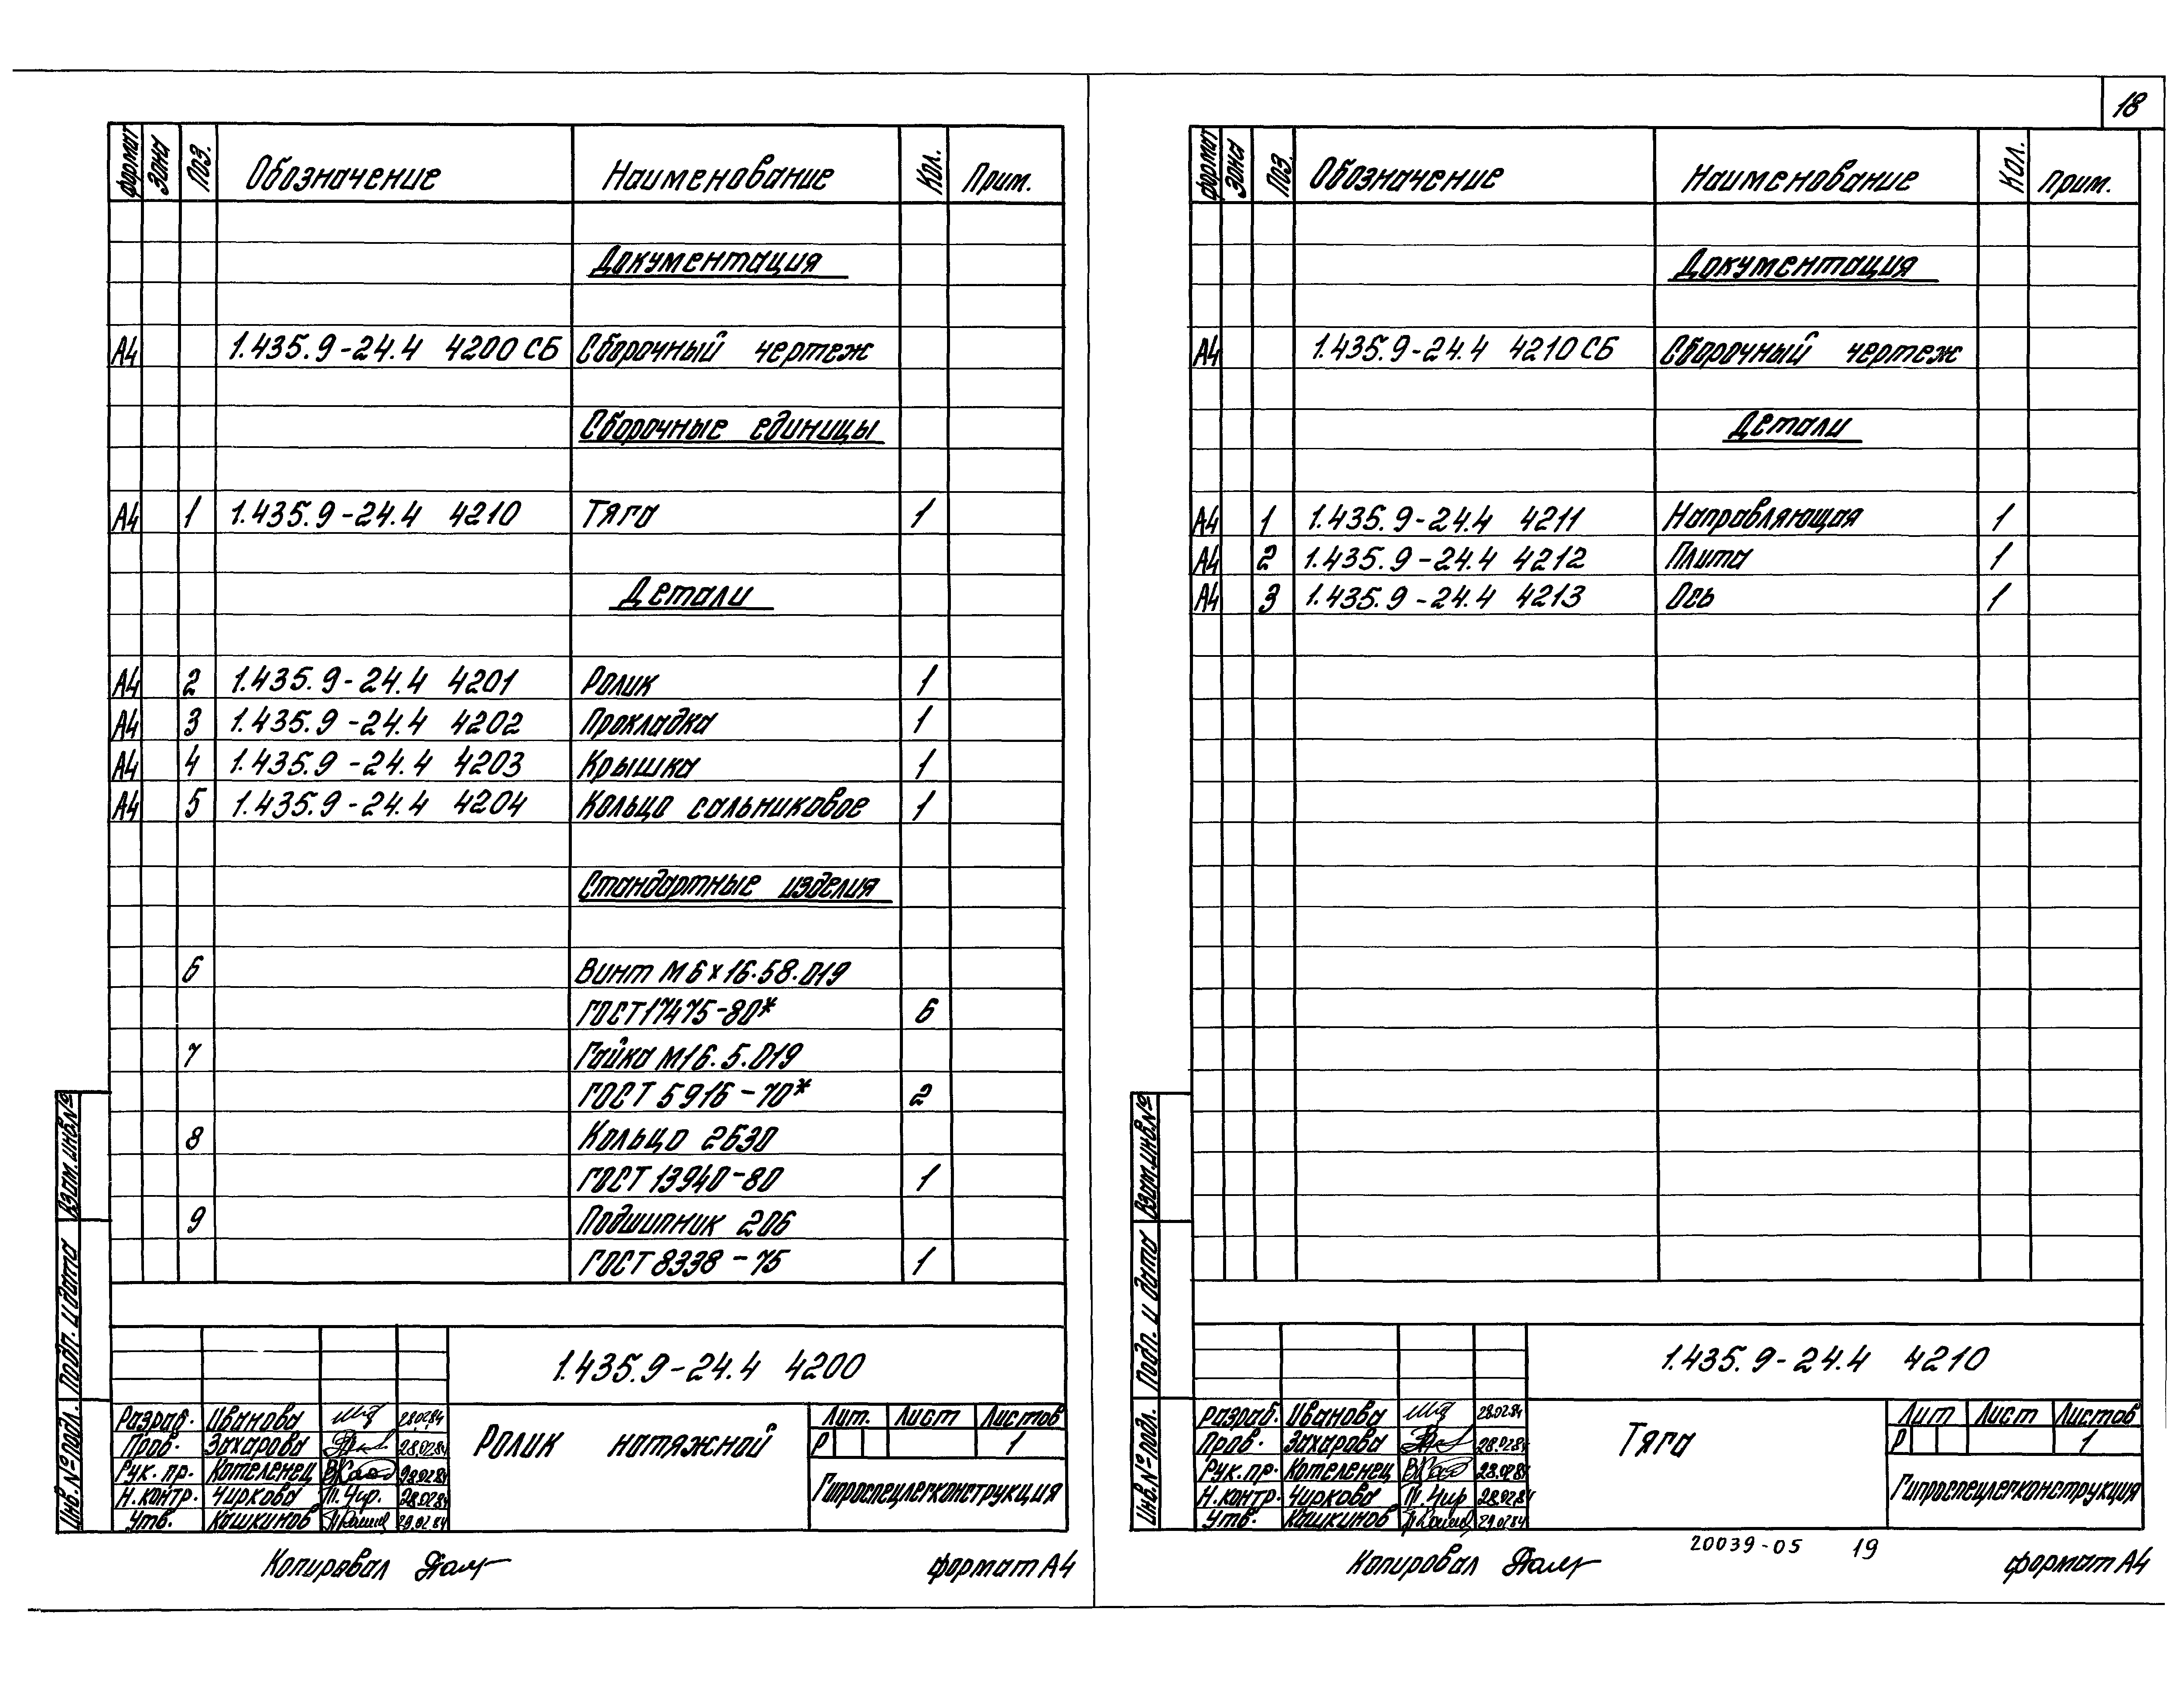 18
формат Зона Поз. Обозначение Наименование Кол. Прим.
Документация
А4 1.435.9-24.4 4200 СБ Сборочный чертеж
Сборочные единицы
А4 1 1.435.9-24.4 4210 Тяга 1
Детали
А4 2 1.435.9-24.4 4201 Ролик 1
А4 3 1.435.9-24.4 4202 Прокладка 1
А4 4 1.435.9-24.4 4203 Крышка 1
А4 5 1.435.9-24.4 4204 Кольцо сальниковое 1
Стандартные изделия
6 Винт М6х16.58.019
ГОСТ 17475-80* 6
7 Гайка М16.5.019
ГОСТ 5916-70* 2
8 Кольцо 2Б30
ГОСТ 13940-80 1
9 Подшипник 206
ГОСТ 8338-75 1
Взам.инв.№
Подп. и дата
Инв.№ подл.
1.435.9-24.4 4200
Разраб. Иванова 28.02.84
Пров. Захарова 28.02.84
Рук. пр. Котеленец 28.02.84
Н.контр. Чиркова П.Чир. 28.02.84
Утв. Кашкинов 29.02.84
Ролик натяжной
Лит. Лист Листов
Р 1
Гипроспецлегконструкция
Копировал
формат А4
формат Зона Поз. Обозначение Наименование Кол. Прим.
Документация
А4 1.435.9-24.4 4210 СБ Сборочный чертеж
Детали
А4 1 1.435.9-24.4 4211 Направляющая 1
А4 2 1.435.9-24.4 4212 Плита 1
А4 3 1.435.9-24.4 4213 Ось 1
Взам.инв.№
Подп. и дата
Инв.№ подл.
1.435.9-24.4 4210
Разраб. Иванова 28.02.84
Пров. Захарова 28.02.84
Рук.пр. Котеленец 28.02.84
Н.контр. Чиркова П.Чир 28.02.84
Утв. Кашкинов 29.02.84
Тяга
Лит Лист Листов
Р 1
Гипроспецлегконструкция
20039-05 19
Копировал
формат А4